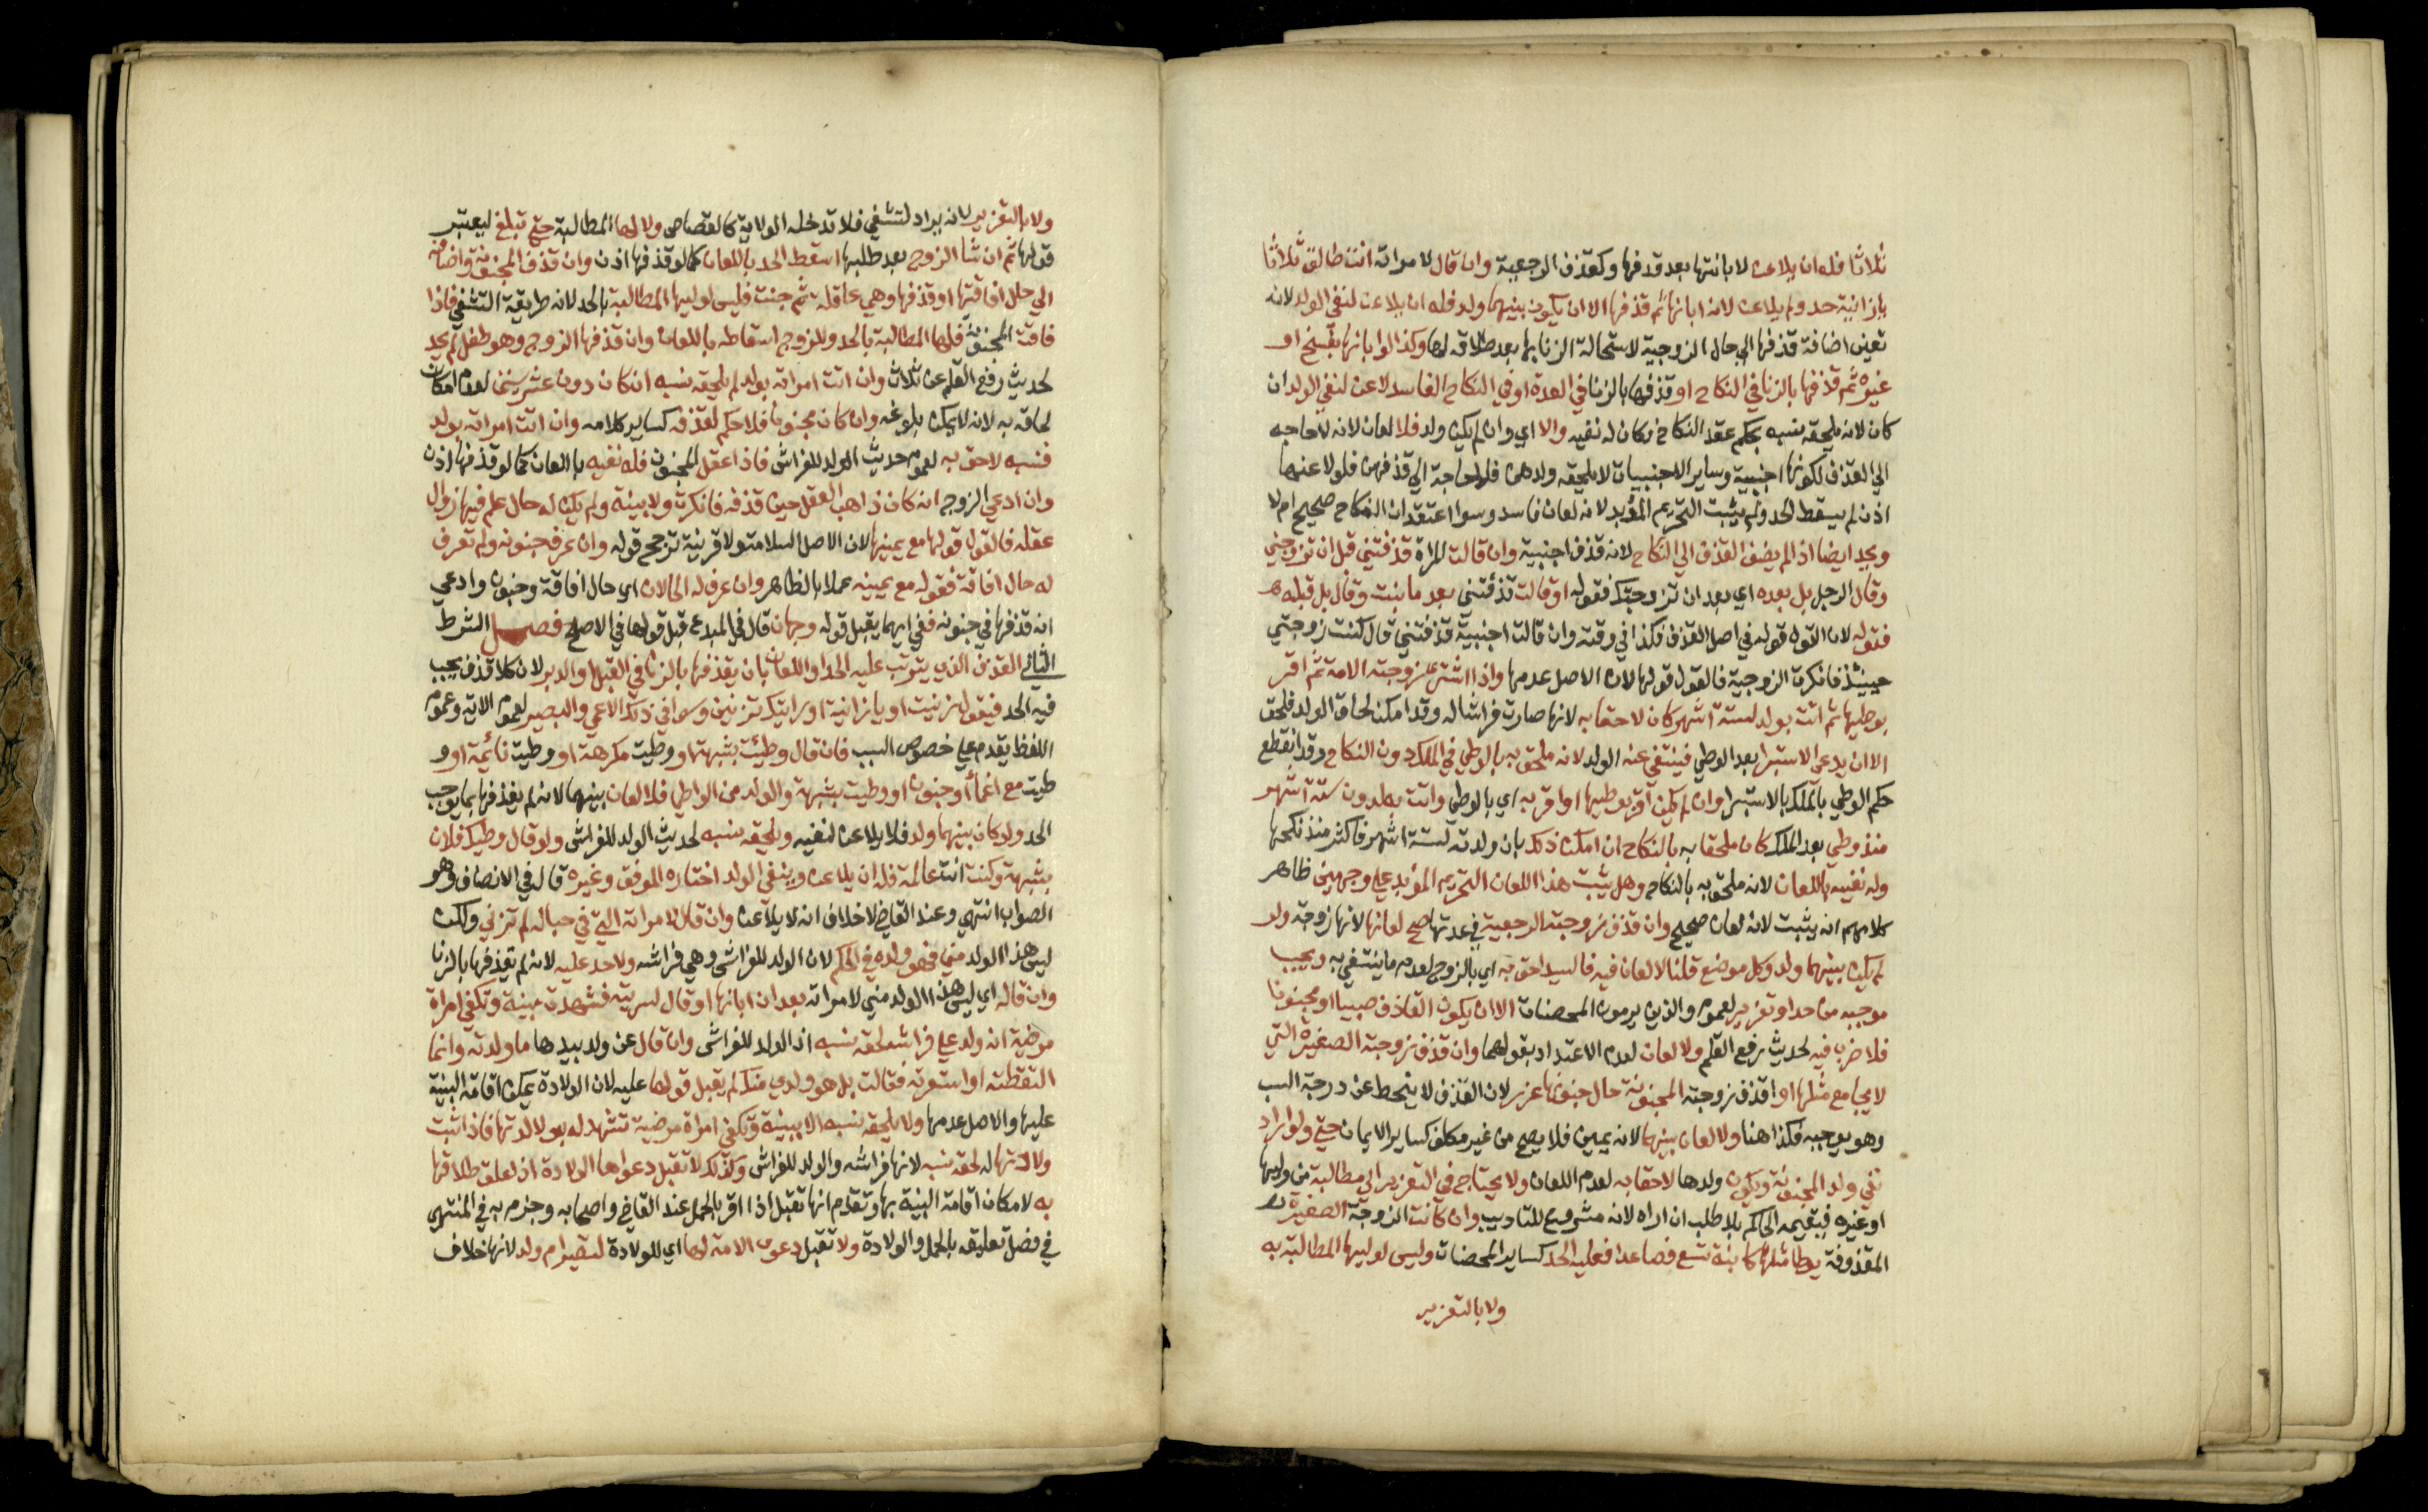 ثلاثا فله ان يلاعن لا بانتها بعد قذفها وكقذف الرجعية وان قال لامراته انت طالق ثلاثا
يا زانية حد ولم يلاعن لانه ابانها ثم قذفها الا ان يكون بينهما ولد فله ان يلاعن لنفي الولد لانه
تعين اضافة قذفها الي حال الزوجية لاستحالة الزنا بها بعد طلاقه لها وكذا لو ابانها بفسخ او
غيره ثم قذفها بالزنا في النكاح او قذفها بالزنا في العدة او في النكاح الفاسد لاعن لنفي الولد ان
كان لانه يلحقه نسبه بحكم عقد النكاح فكان له نفيه والا اي وان لم يكن ولد فلا لعان لانه لا حاجه
الي القذف لكونها اجنبية وساير الاجنبيات لا يلحقه ولدهن فلا حاجة الي قذفهن فلو لاعنها
اذن لم يسقط الحد ولم يثبت التحريم المؤبد لانه لعان فاسد وسوا اعتقد ان النكاح صحيح ام لا
ويحد ايضا اذ لم يضف القذف الي النكاح لانه قذف اجنبية وان قالت المراة قذفتني قبل ان تزوجني
وقال الرجل بل بعده اي بعد ان تزوجتك فقوله او قالت قذفتني بعد ما بنت وقال بل قبله
فقوله لان القول قوله في اصل القذف فكذا في وقته وان قالت اجنبية قذفتني قال كنت زوجتي
حينئذ فانكرت الزوجية فالقول قولها لان الاصل عدمها واذا اشترى زوجته الامة ثم اقر
بوطيها ثم اتت بولد لستة اشهر كان لاحقا به لانها صارت فراشا له وقد امكن لحاق الولد فلحق
الا ان يدعي الاستبرا بعد الوطي فينتفي عنه الولد لانه ملحق به بالوطي في الملك دون النكاح وقد انقطع
حكم الوطي بالملك بالاستبرا وان لم يكن اقر بوطيها او اقر به اي بالوطي واتت بولد دون ستة اشهر
منذ وطي بعد الملك كان ملحقا به بالنكاح ان امكن ذلك بان ولدته لستة اشهر فاكثر منذ نكحها
وله نفيه باللعان لانه ملحق به بالنكاح وهل يثبت هذا اللعان التحريم المؤبد علي وجهين ظاهر
كلامهم انه يثبت لانه لعان صحيح وان قذف زوجته الرجعية في عدتها صح لعانها لانها زوجة ولو
لم يكن بينهما ولد وكل موضع قلنا لا لعان فيه فالنسب لاحق به اي بالزوج لعدم ما ينتفي به ويجب
موجبه من حد او تعزير لعموم والذين يرمون المحصنات الا ان يكون القاذف صبيا او مجنونا
فلا ضرب فيه لحديث رفع القلم ولا لعان لعدم الاعتداد بقولهما وان قذف زوجته الصغيرة التي
لا يجامع مثلها او قذف زوجته المجنونة حال جنونها عزر لان القذف لا ينحط عن درجة السب
وهو يوجبه فكذا هنا ولا لعان بينهما لانه يمين فلا يصح من غير مكلف كساير الايمان حتي ولو اراد
نفي ولد المجنونة ويكون ولدها لاحقا به لعدم اللعان ولا يحتاج في التعزير الي مطالبة من وليها
او غيره فيقيمه الحاكم بلا طلب ان اراه لانه مشروع للتاديب وان كانت الزوجة الصغيرة
المقذوفة يوطا مثلها كابنة تسع فصاعدا فعليه الحد كساير المحصنات وليس لوليها المطالبة به
ولا بالتعزير
ولا بالتعزير لانه يراد لتشفي فلا تدخله الولاية كالقصاص ولا لها المطالبة حتي تبلغ ليعتبر
قولها ثم ان شا الزوج بعد طلبها اسقط الحد باللعان كما لو قذفها اذن وان قذف المجنونة واضافه
الي حال افاقتها او قذفها وهي عاقلة ثم جنت فليس لوليها المطالبة بالحد لانه طريقة التشفي فاذا
فاقة المجنونة فلها المطالبة بالحد وللزوج اسقاطه باللعان وان قذفها الزوج وهو طفل لم يحد
لحديث رفع القلم عن ثلاث وان اتت امراته بولد لم يلحقه نسبه ان كان دون عشر سنين لعدم امكان
لحاقه به لانه لا يمكن بلوغه وان كان مجنونا فلا حكم لقذفه كساير كلامه وان اتت امراته بولد
فنسبه لاحق به لعموم حديث الولد للفراش فاذا عقل المجنون فله نفيه باللعان كما لو قذفها اذن
وان ادعي الزوج انه كان ذاهب العقل حين قذفه فانكرت ولا بينة ولم يكن له حال علم فيها زوال
عقله فالقول قولها مع يمينها لان الاصل السلامة ولا قرينة ترجح قوله وان عرف جنونه ولم تعرف
له حال افاقة فقوله مع يمينه عملا بالظاهر وان عرف له الحالان اي حال افاقة وجنون وادعي
انه قذفها في جنونه ففي ايهما يقبل قوله وجهان قال في المبدع قبل قولها في الاصح فصل الشرط
الثاني القذف الذي يترتب عليه الحد او اللعان بان يقذفها بالزنا في القبل او الدبر لان كلا قذف يجب
فيه الحد فيقول زنيت او يا زانية او رايتك تزنين وسوا في ذلك الاعمي والبصير لعموم الاية وعموم
اللفظ يقدم علي خصوص السبب فان قال وطئت بشبهة او وطيت مكرهة او وطيت نائمة او و
طيت مع اغما او جنون او وطيت بشبهة والولد من الواطي فلا لعان بينهما لانه لم يقذفها بما يوجب
الحد ولو كان بينهما ولد فلا يلاعن لنفيه ويلحقه نسبه لحديث الولد للفراش ولو قال وطيك فلان
بشبهة وكنت انت عالمة فله ان يلاعن وينفي الولد اختاره الموفق وغيره قال في الانصاف وهو
الصواب انتهي وعند القاضي لا خلاف انه لا يلاعن وان قال لامراته التي في حباله لم تزني ولكن
ليس هذا الولد مني فهو ولده في الحكم لان الولد للفراش وهي فراشه ولا حد عليه لانه لم يقذفها بالزنا
وان قاله اي ليس هذا الولد مني لامراته بعد ان ابانها او قال لسريته فشهدت بينة وتكفي امراة
مرضية انه ولد علي فراشه لحقه نسبه اذ الولد للفراش وان قال عن ولد بيدها ما ولدته وانما
التقطته او استعرته فقالت بل هو ولدي منك لم يقبل قولها عليه لان الولادة يمكن اقامة البينة
عليها والاصل عدمها ولا يلحقه نسبه الا ببينة وتكفي امراة مرضية تشهد له بولادتها فاذا ثبت
ولادتها له لحقه نسبه لانها فراشه والولد للفراش وكذلك لا تقبل دعواها الولادة اذ لعلق طلاقها
به لامكان اقامة البينة بها وتقدم انها تقبل اذا اقر بالحمل عند القاضي واصحابه وجزم به في المنتهي
في فصل تعليقه بالحمل والولادة ولا تقبل دعوى الامة لها اي للولادة لتصير ام ولد لانها خلاف